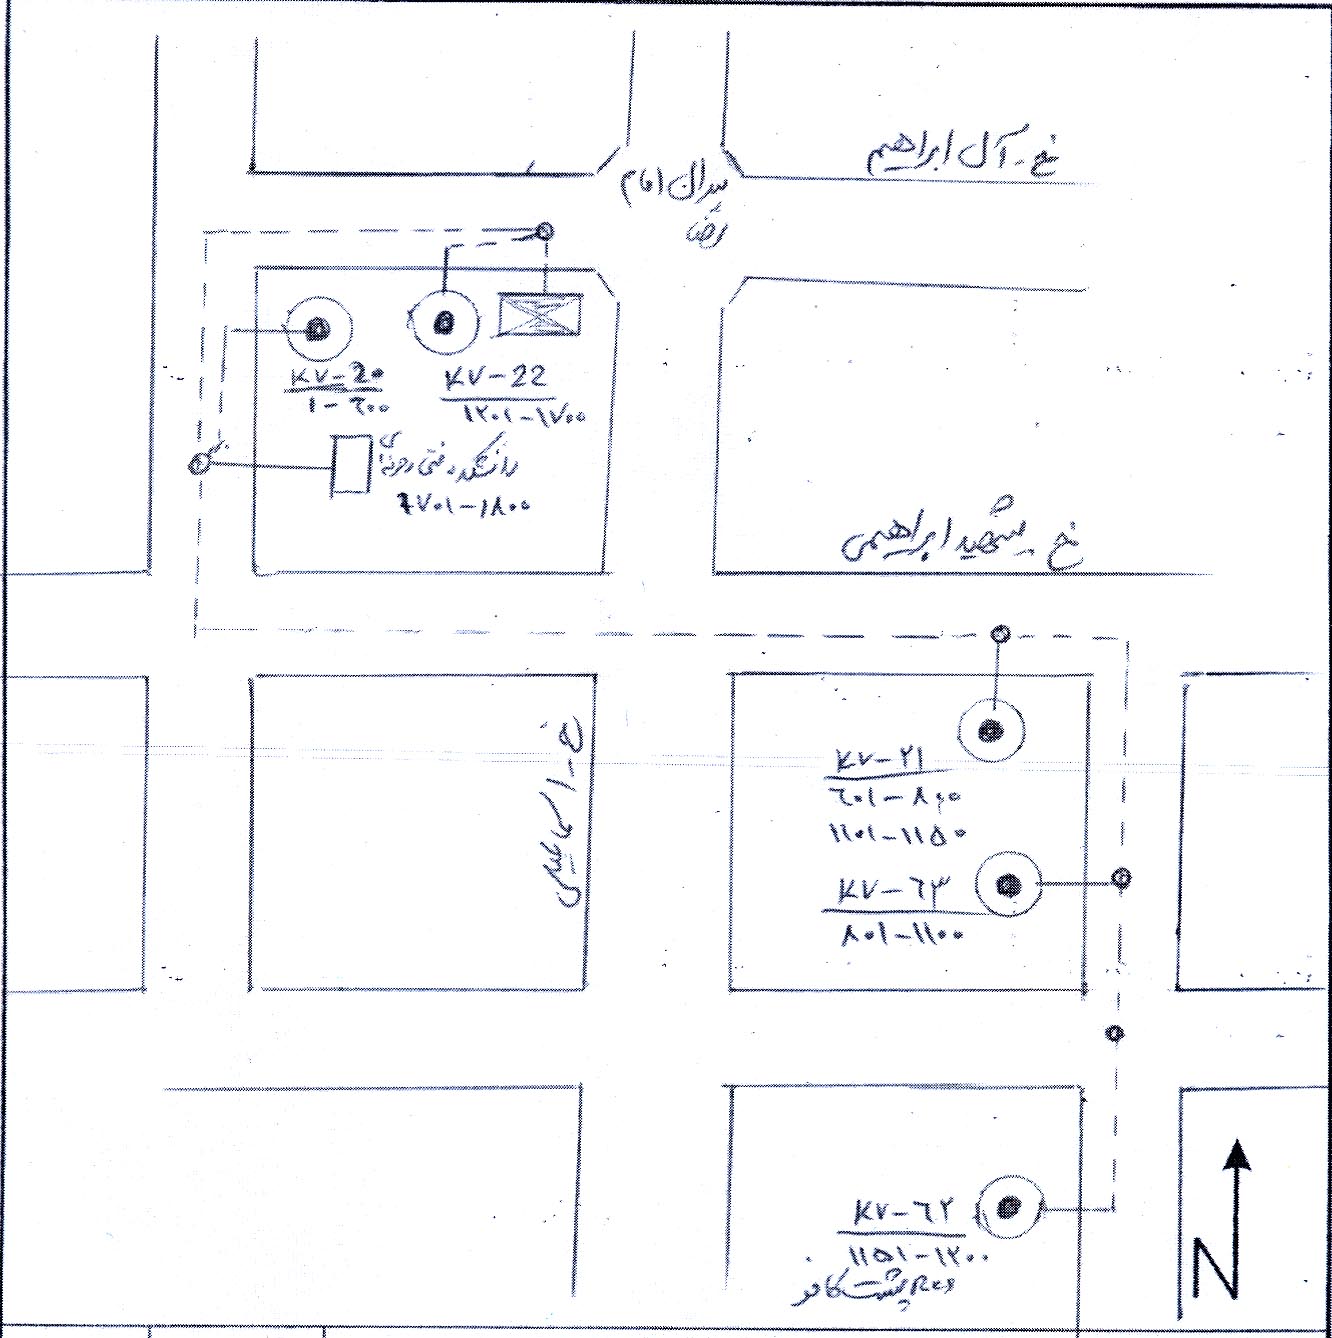 خ - آل ابراهیم
میدان امام
رضا
KV-20
۱-٦۰۰
KV-22
۱۲۰۱-۱۷۰۰
دانشکده فنی حرفه‌ای
۱۷۰۱-۱۸۰۰
خ - شهید ابراهیمی
خ - اسماعیلی
KV-۲۱
٦۰۱-۸۰۰
۱۱۰۱-۱۱۵۰
KV-٦۳
۸۰۱-۱۱۰۰
KV-٦۲
۱۱۵۱-۱۲۰۰
پشت کافو
N